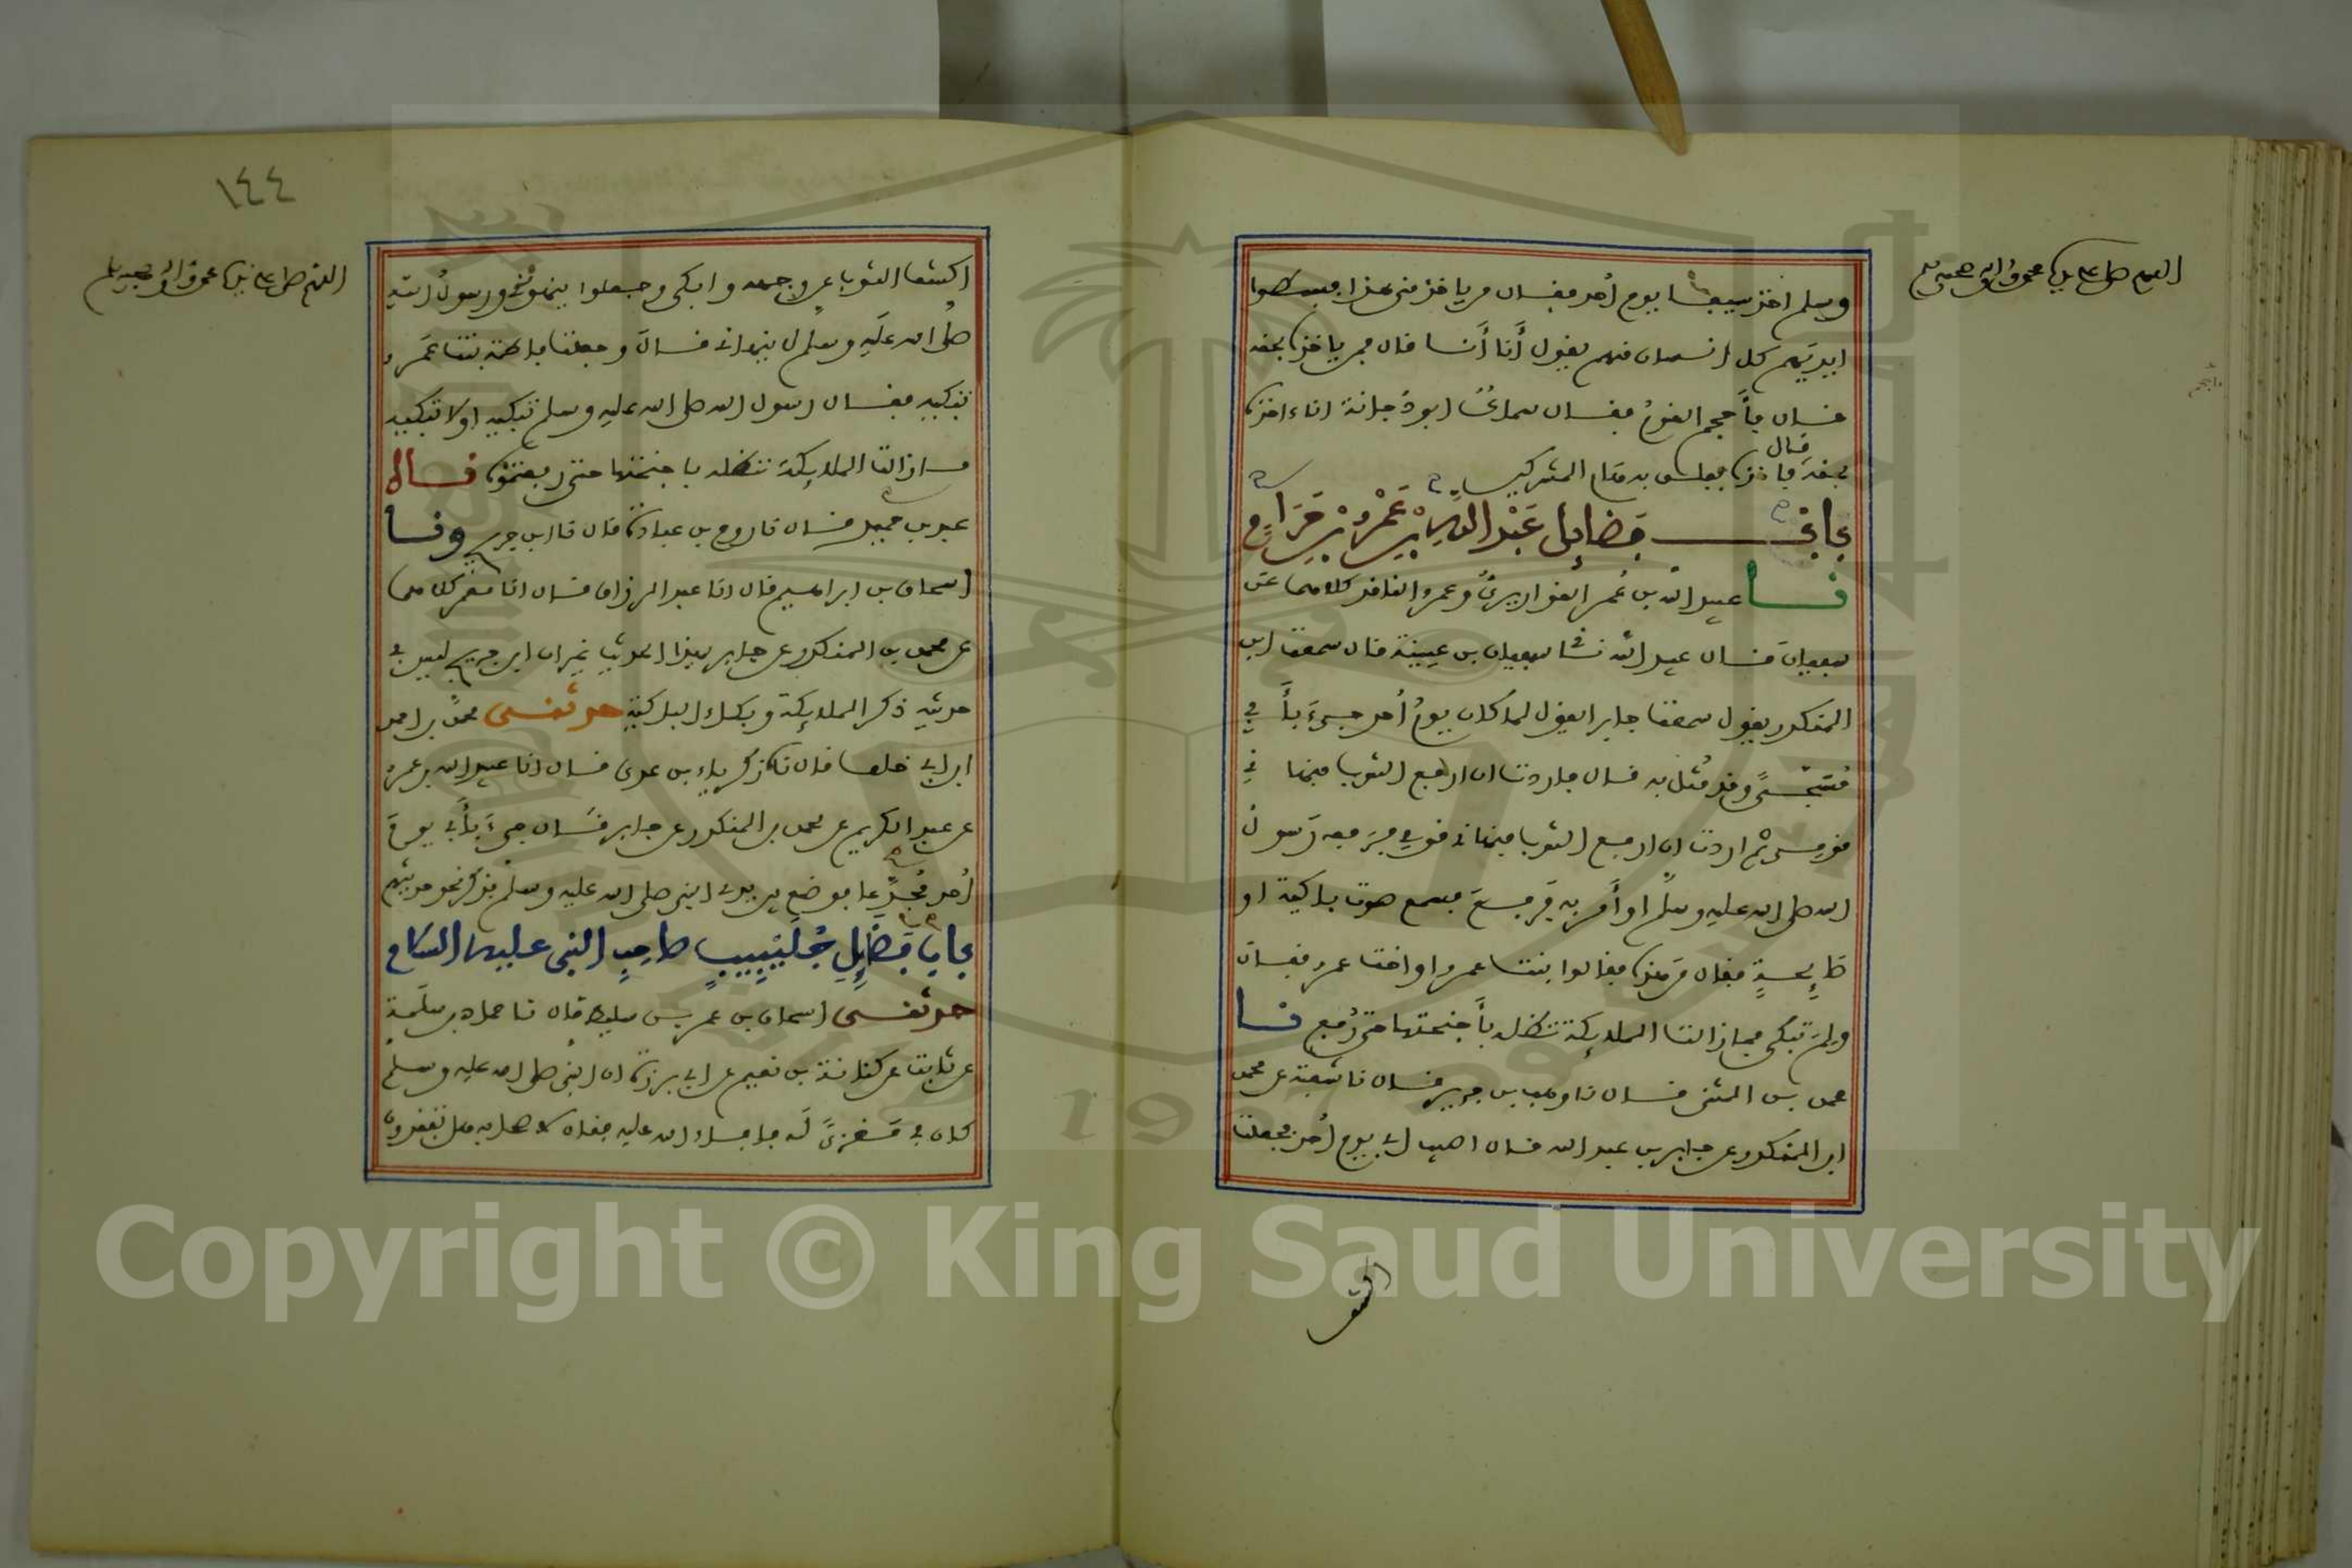 اللهم صل على سيدنا محمد وآله وصحبه وسلم
وسلم اخذ سيفا يوم أحد فقال من ياخذ مني هذا فبسطوا
ايديهم كل انسان منهم يقول أنا أنا قال فمن ياخذه بحقه
قال فأحجم القوم فقال سماك ابو دجانة انا ءاخذه
بحقه قال فاخذه ففلق به هام المشركين
باب في فضايل عبد الله بن عمرو بن حرام
نا عبيد الله بن عمر القواريري وعمرو الناقد كلاهما عن
سفيان قال عبيد الله نا سفيان بن عيينة قال سمعت ابن
المنكدر يقول سمعت جابرا يقول لما كان يوم أحد جيء بأبي
مسجى وقد مثل به قال فاردت ان ارفع الثوب فنهاني
قومي ثم اردت ان ارفع الثوب فنهاني قومي فرفعه رسول
الله صلى الله عليه وسلم او أمر به فرفع فسمع صوت باكية او
صايحة فقال من هذه فقالوا بنت عمرو او اخت عمرو فقال
ولم تبكي فما زالت الملايكة تظله بأجنحتها حتى رفع نا
محمد بن المثنى قال نا وهب بن جرير قال نا شعبة عن محمد
ابن المنكدر عن جابر بن عبد الله قال اصيب ابي يوم أحد فجعلت
اكشف
١٤٤
اللهم صل على سيدنا محمد وآله وصحبه وسلم
اكشف الثوب عن وجهه وابكي وجعلوا ينهونني ورسول الله
صلى الله عليه وسلم لا ينهاني قال وجعلت فاطمة بنت عمرو
تبكيه فقال رسول الله صلى الله عليه وسلم تبكيه او لا تبكيه
ما زالت الملايكة تظله باجنحتها حتى رفعتموه نا
عبد بن حميد قال نا روح بن عبادة قال نا ابن جريج ونا
إسحاق بن ابراهيم قال انا عبد الرزاق قال انا معمر كلاهما
عن محمد بن المنكدر عن جابر بهذا الحديث غير ان ابن جريج ليس في
حديثه ذكر الملايكة وبكاء الباكية حدثني محمد بن احمد
ابن ابي خلف قال نا زكرياء بن عدي قال انا عبيد الله بن عمرو
عن عبد الكريم عن محمد بن المنكدر عن جابر قال جيء بأبي يوم
أحد مجدعا فوضع بين يدي النبي صلى الله عليه وسلم فذكر نحو حديثهم
باب فضايل جليبيب صاحب النبي عليه السلام
حدثني إسحاق بن عمر بن سليط قال نا حماد بن سلمة
عن ثابت عن كنانة بن نعيم عن ابي برزة ان النبي صلى الله عليه وسلم
كان في مغزى له فافاء الله عليه فقال لاصحابه هل تفقدون
Copyright © King Saud University
1957